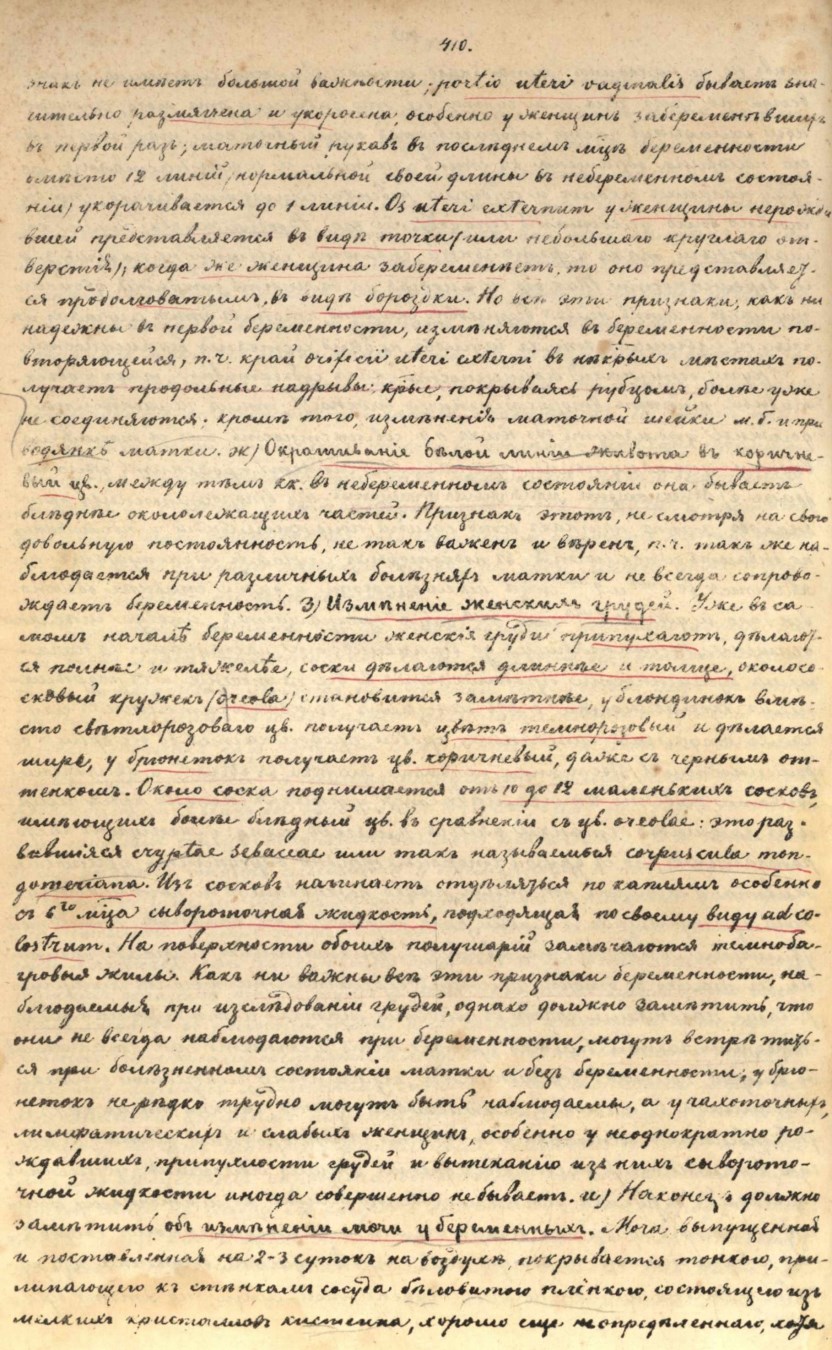 410.
знакъ не имѣетъ большой важности; portio uteri vaginalis бываетъ зна-
чительно размягчена и укорочена, особенно у женщинъ забеременѣвшихъ
въ первой разъ; маточный рукавъ въ послѣднемъ мцѣ беременности
вмѣсто 12 линій (нормальной своей длины въ небеременномъ состоя-
ніи) укорачивается до 1 линіи. Os uteri externum у женщины нерожа-
вшей представляется въ видѣ точки (или небольшаго круглаго от-
верстія); когда же женщина забеременѣетъ, то оно представляет-
ся продолговатымъ, въ видѣ бороздки. Но всѣ эти признаки, какъ ни
надежны въ первой беременности, измѣняются въ беременности по-
вторяющейся, п.ч. край orificii uteri externi въ нѣкрыхъ мѣстахъ по-
лучаетъ продольные надрывы, крые, покрываясь рубцомъ, болѣе уже
не соединяются. кромѣ того, измѣненія маточной шейки м.б. и при
водянкѣ матки. ж) Окрашиваніе бѣлой линіи живота въ коричне-
вый цв., между тѣмъ кк. въ небеременномъ состояніи она бываетъ
блѣднѣе окололежащихъ частей. Признакъ этотъ, не смотря на свою
довольную постоянность, не такъ важенъ и вѣренъ, п.ч. такъ же на-
блюдается при различныхъ болѣзняхъ матки и не всегда сопрово-
ждаетъ беременность. З) Измѣненіе женскихъ грудей. Уже въ са-
момъ началѣ беременности женскія груди припухаютъ, дѣлают-
ся полнѣе и тяжелѣе, соски дѣлаются длиннѣе и толще, околосо-
сковый кружекъ (areola) становится замѣтнѣе, у блондинокъ вмѣ-
сто свѣтлорозоваго цв. получаетъ цвѣтъ темнорозовый и дѣлается
шире, у брюнетокъ получаетъ цв. коричневый, даже съ чернымъ от-
тенкомъ. Около соска поднимается отъ 10 до 12 маленькихъ сосковъ,
имѣющихъ болѣе блѣдный цв. въ сравненіи съ цв. areolae: это раз-
вившіяся cryptae sebaceae или такъ называемыя corpuscula mon-
gomeriana. Изъ сосковъ начинаетъ отдѣляться по каплямъ особенно
съ 6го мца сывороточная жидкость, подходящая по своему виду ad co-
lostrum. На поверхности обоихъ полушарій замѣчаются темноба-
гровыя жилы. Какъ ни важны всѣ эти признаки беременности, на-
блюдаемыя при изслѣдованіи грудей, однако должно замѣтить, что
они не всегда наблюдаются при беременности, могутъ встрѣтить-
ся при болѣзненномъ состояніи матки и безъ беременности; у брю-
нетокъ нерѣдко трудно могутъ быть наблюдаемы, а у чахоточныхъ,
лимфатическихъ и слабыхъ женщинъ, особенно у неоднократно ро-
ждавшихъ, припухлости грудей и вытеканію изъ нихъ сыворото-
чной жидкости иногда совершенно не бываетъ. и) Наконецъ должно
замѣтить объ измѣненіи мочи у беременныхъ. Моча выпущенная
и поставленная на 2-3 сутокъ на воздухѣ, покрывается тонкою, при-
липающею къ стѣнкамъ сосуда бѣловатою плёнкою, состоящею изъ
мелкихъ кристалловъ кистеина, хорошо еще неопредѣленнаго, хотя